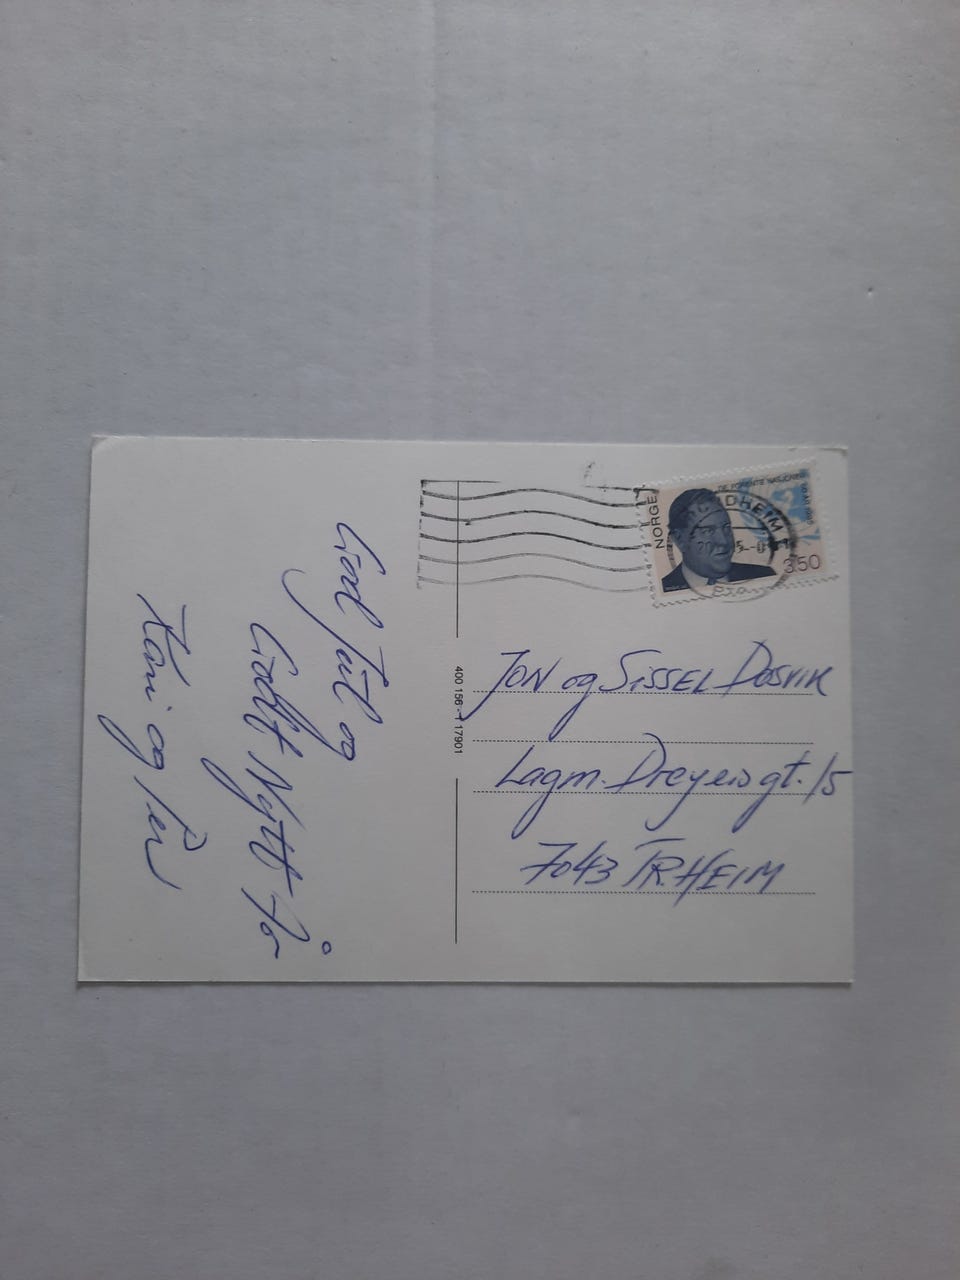 God Jul og
Godt Nytt År
Kari og Per
400 156 - 1 17901
NORGE
DE FORENTE NASJONER 50 ÅR 1995
3.50
TRONDHEIM
JON og SISSEL DØSVIK
Lagm. Dreyers gt. 15
7043 TR.HEIM